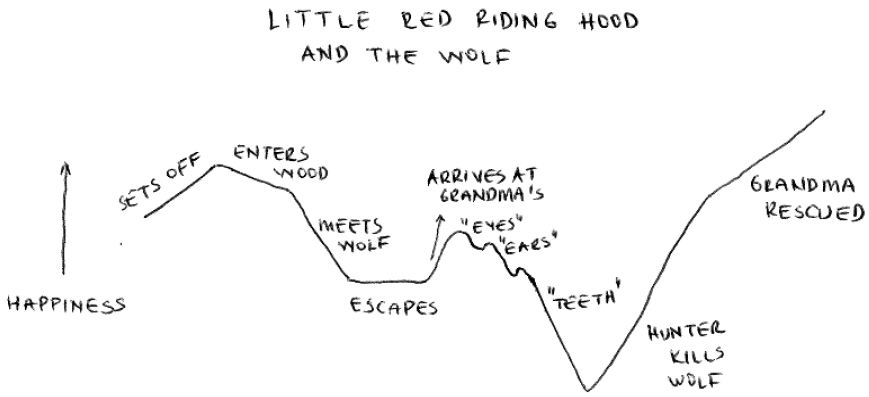 LITTLE RED RIDING HOOD
AND THE WOLF
HAPPINESS
SETS OFF
ENTERS
WOOD
MEETS
WOLF
ESCAPES
ARRIVES AT
GRANDMA'S
"EYES"
"EARS"
"TEETH"
HUNTER
KILLS
WOLF
GRANDMA
RESCUED